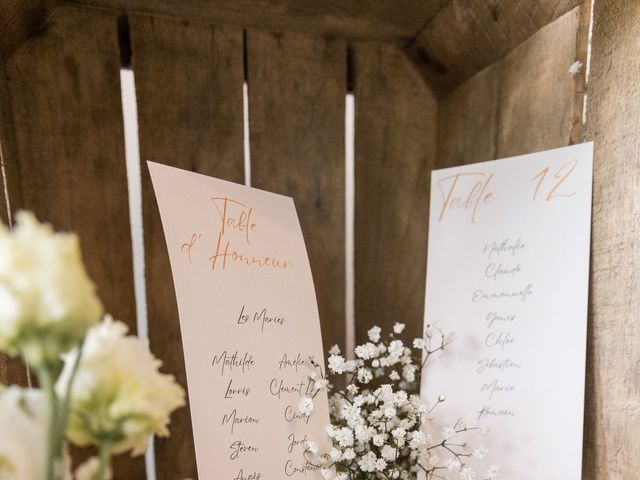 Table
d'Honneur
Les Mariés
Mathilde Amélie
Lorris Clément
Marion Cindy
Steven Jord
Anaïs Constan
Table 12
Nathalie
Claude
Emmanuelle
Yanis
Chloé
Sébastien
Marie
Romain